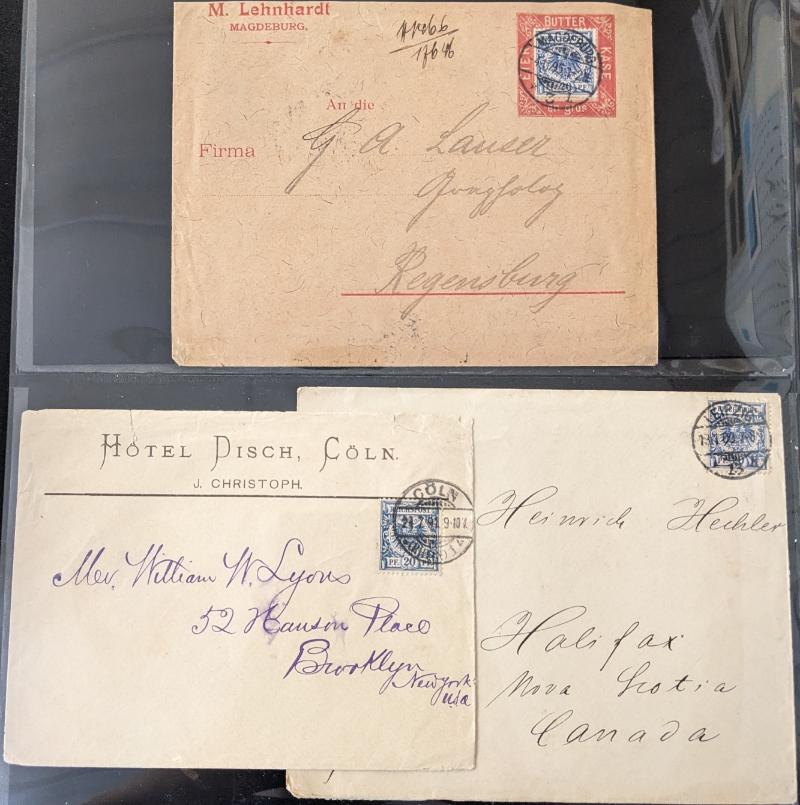 M. Lehnhardt
MAGDEBURG.
BUTTER
EIER
KÄSE
en gros
MAGDEBURG
An die
Firma
G A. Lauser
Regensburg
HÔTEL DISCH, CÖLN.
J. CHRISTOPH.
CÖLN
9-10V.
REICHSPOST
PF. 20 PF.
Mr. William W. Lyons
52 Hanson Place
Brooklyn
New York
USA
LEIPZIG
13
Heinrich Hechler
Halifax
Nova Scotia
Canada